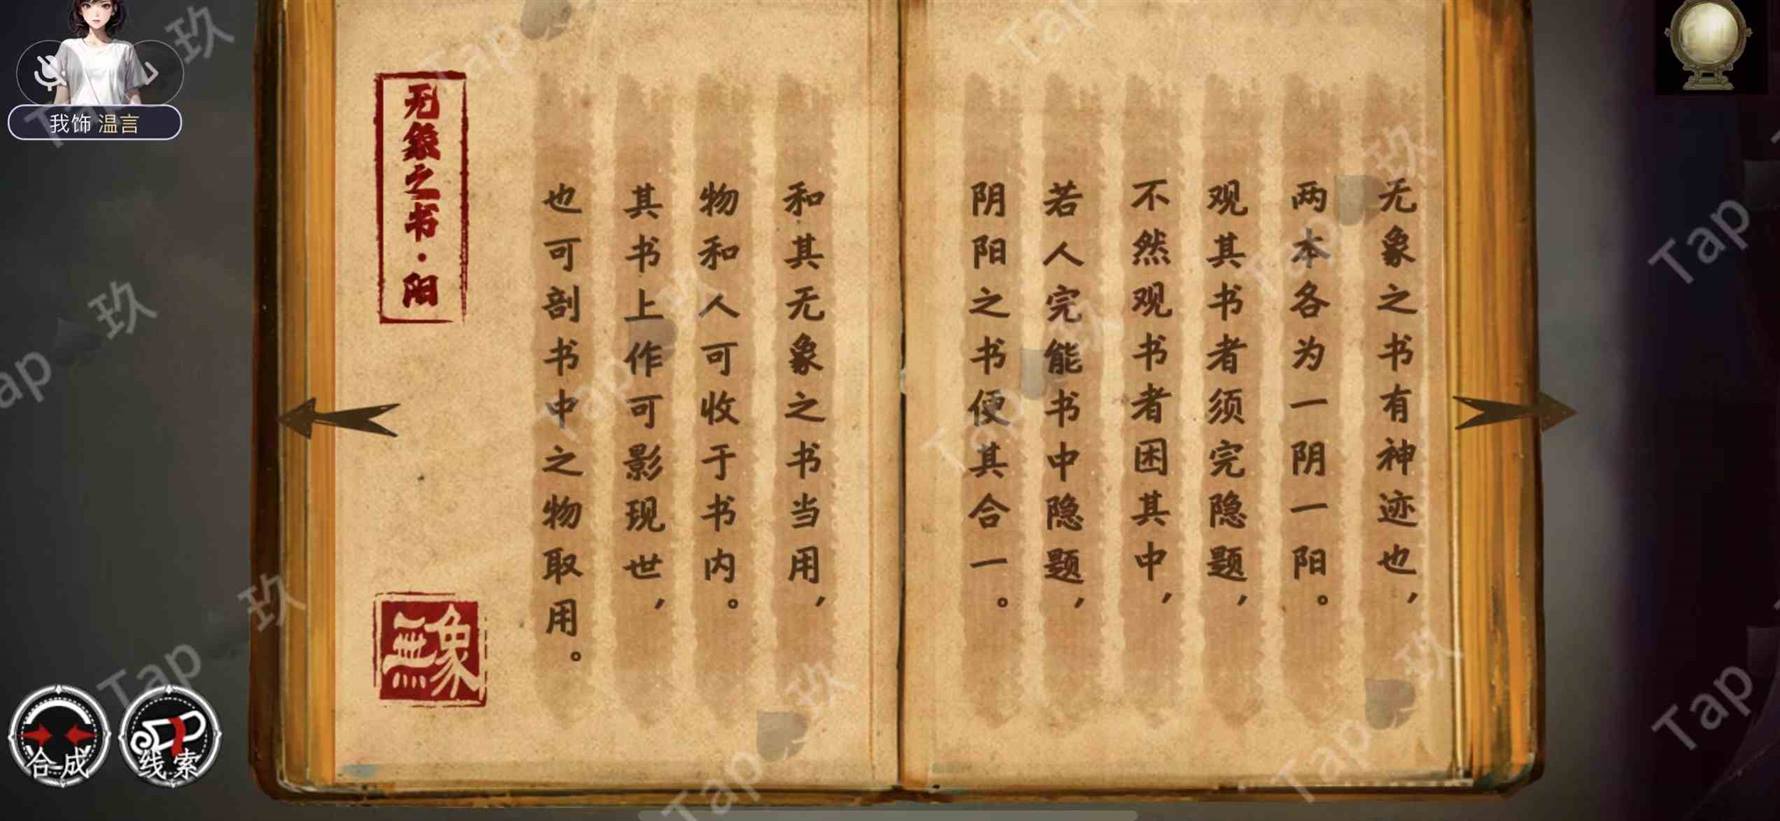 无象之书有神迹也，
两本各为一阴一阳。
观其书者须完隐题，
不然观书者困其中，
若人完能书中隐题，
阴阳之书便其合一。
和其无象之书当用，
物和人可收于书内。
其书上作可影现世，
也可剖书中之物取用。
无象之书·阳
無象
我饰 温言
合成
线索
Tap 玖
Tap 玖
Tap 玖
Tap 玖
Tap 玖
Tap 玖
Tap 玖
Tap
Tap